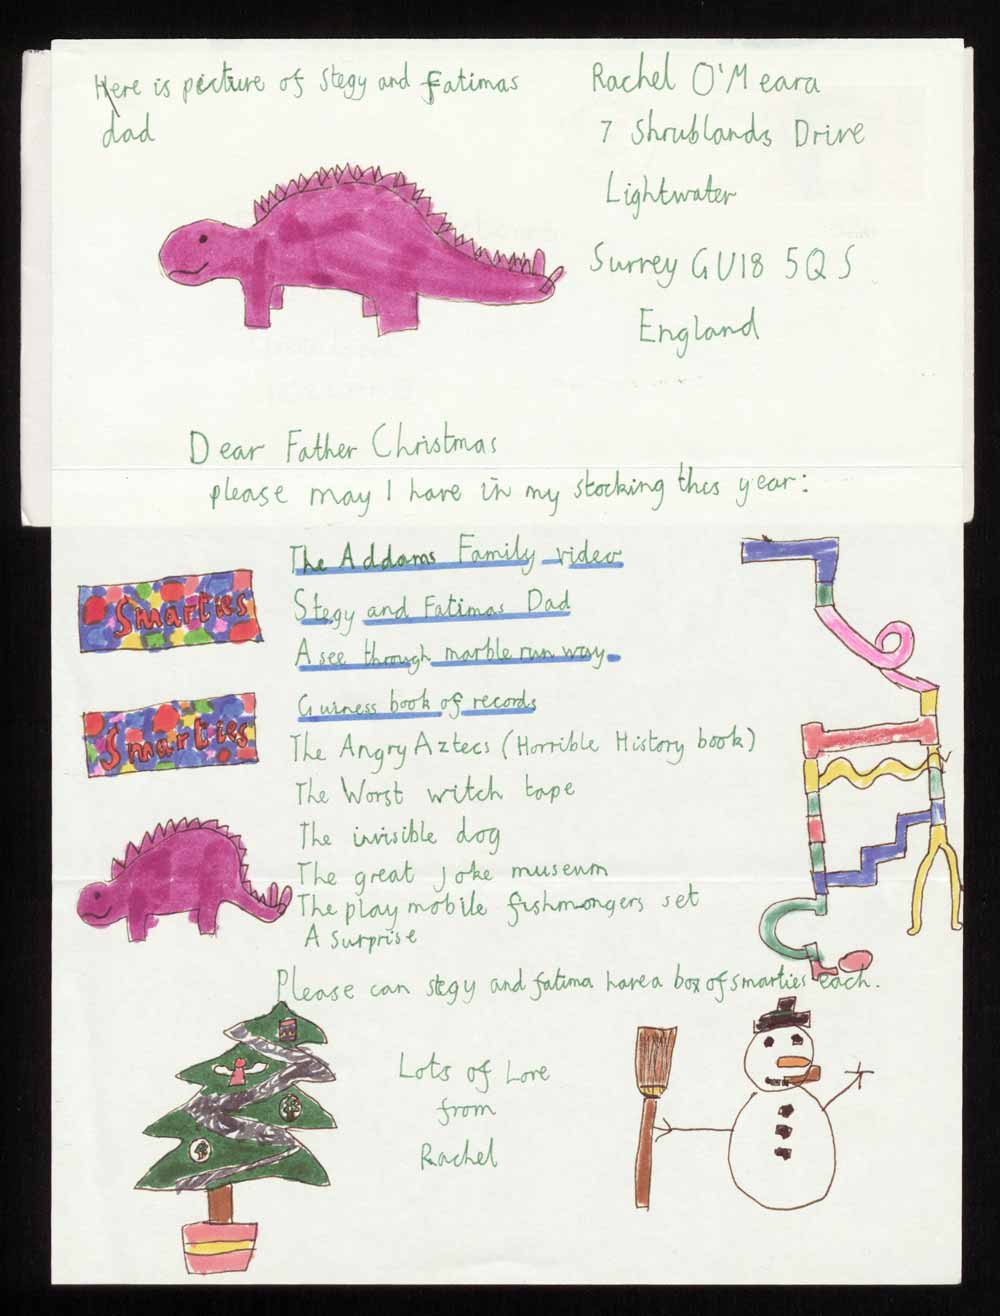 Here is picture of Stegy and Fatimas
dad
Rachel O'Meara
7 Shrublands Drive
Lightwater
Surrey GU18 5QS
England
Dear Father Christmas
please may I have in my stocking this year:
The Addams Family video
Stegy and Fatimas Dad
A see through marble run way.
Guiness book of records
The Angry Aztecs (Horrible History book)
The Worst witch tape
The invisible dog
The great joke museum
The play mobile fishmongers set
A surprise
Smarties
Smarties
Please can stegy and fatima have a box of smarties each.
Lots of Love
from
Rachel